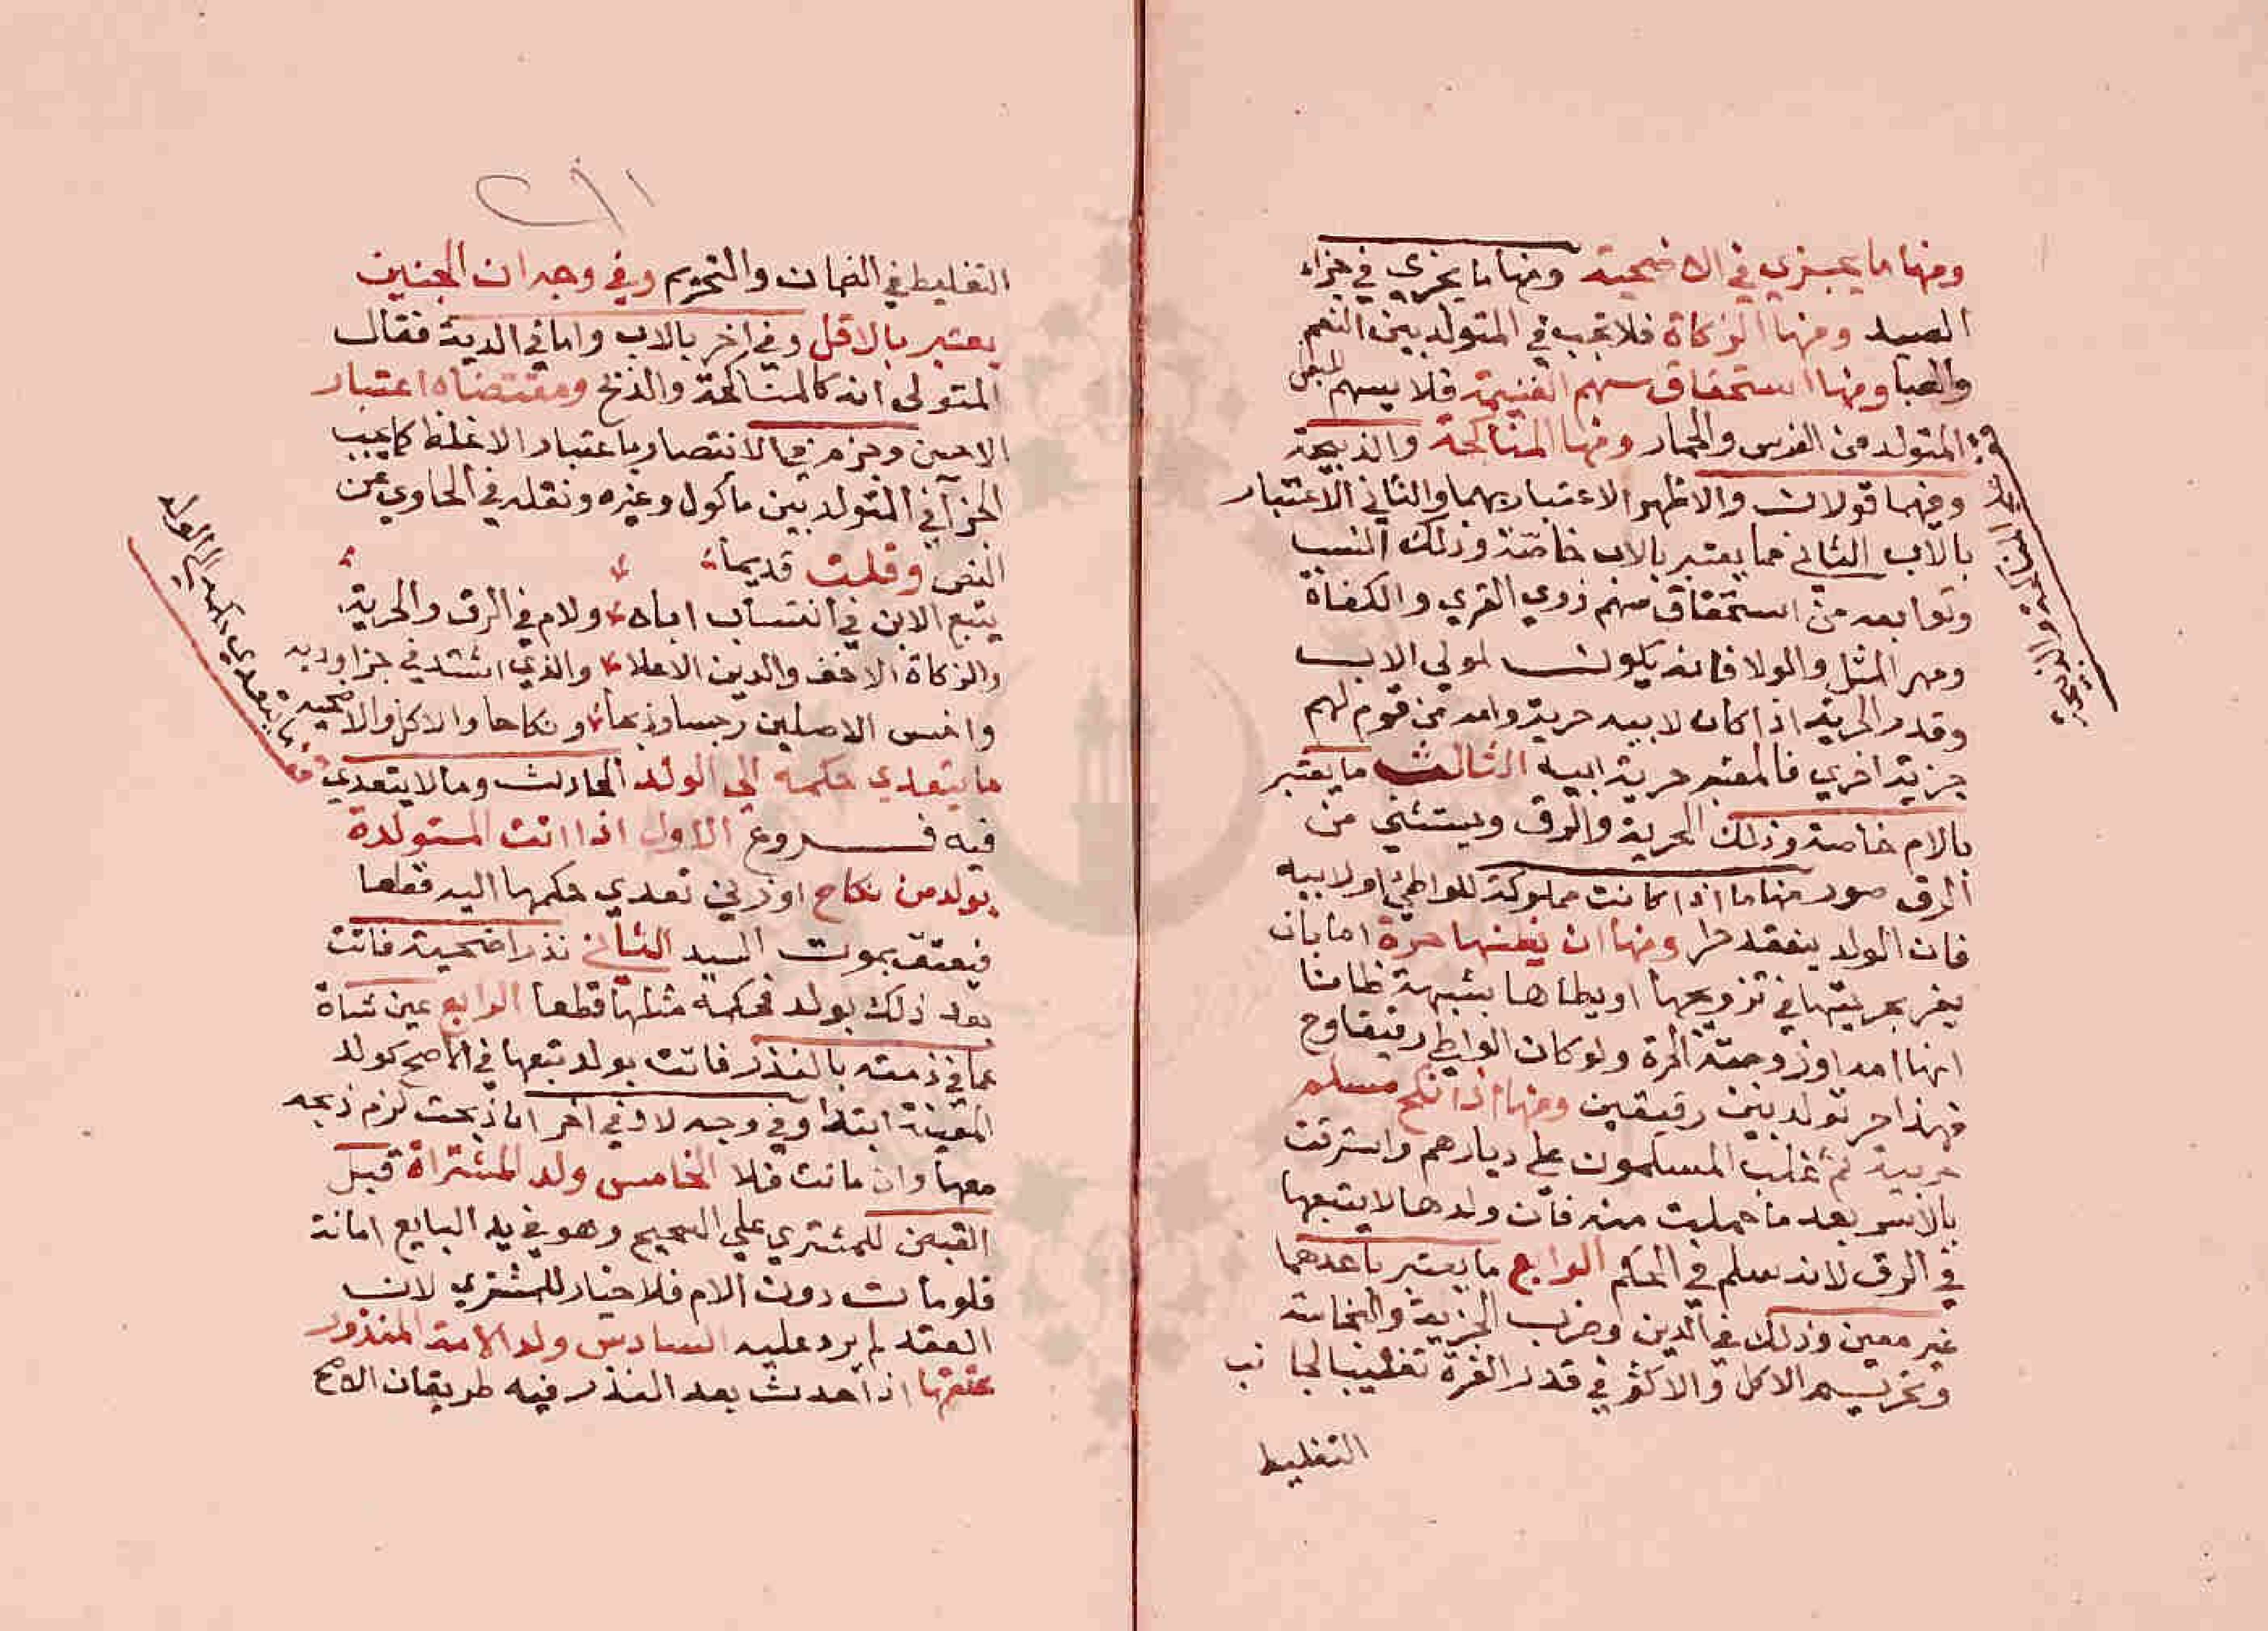 ومنها ما يجزي في الاضحية ومنها ما يجزي في جزاء
الصيد ومنها الزكاة فلا تجب في المتولد بين النعم
والضبا ومنها استحقاق سهم الغنيمة فلا يسهم
المتولد من الفرس والحمار ومنها المناكحة والذبيحة
وفيهما قولان والاظهر الاعتبار بهما والثاني الاعتبار
بالاب الثاني ما يعتبر بالاب خاصة وذلك النسب
وتوابعه من استحقاق سهم ذوي القربي والكفاة
ومهر المثل والولا فانه يكون لمولي الاب
وقدر الجزية اذا كان لابيه جزية وامه من قوم لهم
جزية اخري فالمعتبر جزية ابيه الثالث ما يعتبر
بالام خاصة وذلك الحرية والرق ويستثني من
الرق صور منها ما اذا كانت مملوكة للواطئ او لابيه
فان الولد ينعقد حرا ومنها ان يظنها حرة اما بان
يغر بحريتها في تزويجها او يطاها بشبهة ظانا
انها امه او زوجته الحرة ولو كان الواطي رقيقا وح
فهذا حر تولد بين رقيقين ومنها اذا نكح مسلم
حربية ثم غلب المسلمون علي ديارهم واسترقت
بالاسر بعد ما حملت منه فان ولدها لا يتبعها
في الرق لانه مسلم في الحكم الرابع ما يعتبر باحدهما
غير معين وذلك في الدين وضرب الجزية والنجاسة
وتحريم الاكل والاكثر في قدر الغرة تغليبا لجانب
التغليط
التغليط في الضمان والتحريم وفي وجه ان الجنين
يعتبر بالاقل وفي اخر بالاب واما في الدية فقال
المتولي انه كالمناكحة والذبح ومقتضاه اعتبار
الاخس وجزم في الانتصار باعتبار الاغلظ كما يجب
الجزآ في المتولد بين ماكول وغيره ونقله في الحاوي عن
النص وقلت قديما
يتبع الابن في انتساب اباه ولام في الرق والحرية
والزكاة الاخف والدين الاعلا والذي اشتد في جزا ودية
واخس الاصلين رجسا وذبحا ونكاحا والاكل والاضحية
ما يتعدي حكمه الي الولد الحادث وما لا يتعدي
فيه فروع الاول اذا اتت المستولدة
بولد من نكاح او زني تعدي حكمها اليه قطعا
فيعتق بموت السيد الثاني نذر اضحية فاتت
بعد ذلك بولد فحكمه مثلها قطعا الرابع عين شاة
عما في ذمته بالنذر فاتت بولد تبعها في الاصح كولد
المعينة ابتدا وفي وجه لا وفي اخر ان ذبحت لزم ذبحه
معها وان ماتت فلا الخامس ولد المشتراة قبل
القبض للمشتري علي الصحيح وهو في يد البايع امانة
فلو مات دون الام فلا خيار للمشتري لان
العقد لم يرد عليه السادس ولد الامة المنذور
عتقها اذا حدث بعد النذر فيه طريقان الاصح